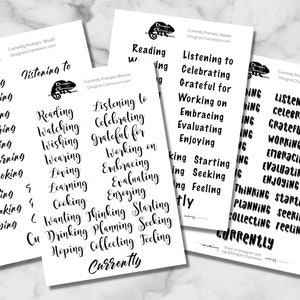 Currently Prompts: Brush
DesignerChameleon.com
Listening to
Currently Prompts: Bounce
DesignerChameleon.com
Reading Listening to
Watching Celebrating
Wishing Grateful for
Wearing Working on
Loving Embracing
Learning Evaluating
Cooking Enjoying
Wanting Thinking Starting
Drinking Planning Seeking
Hoping Collecting Feeling
Currently
Currently Prompts: Marker
DesignerChameleon.com
Reading Listening to
Celebrating
Grateful for
Working on
Embracing
Evaluating
Enjoying
Starting
Seeking
Feeling
DesignerChameleon.com
Listening
Celebra
Grateful
Working
Embracin
Evaluatin
Enjoying
Thinking Start
Planning Seeki
Collecting Feeli
Currently